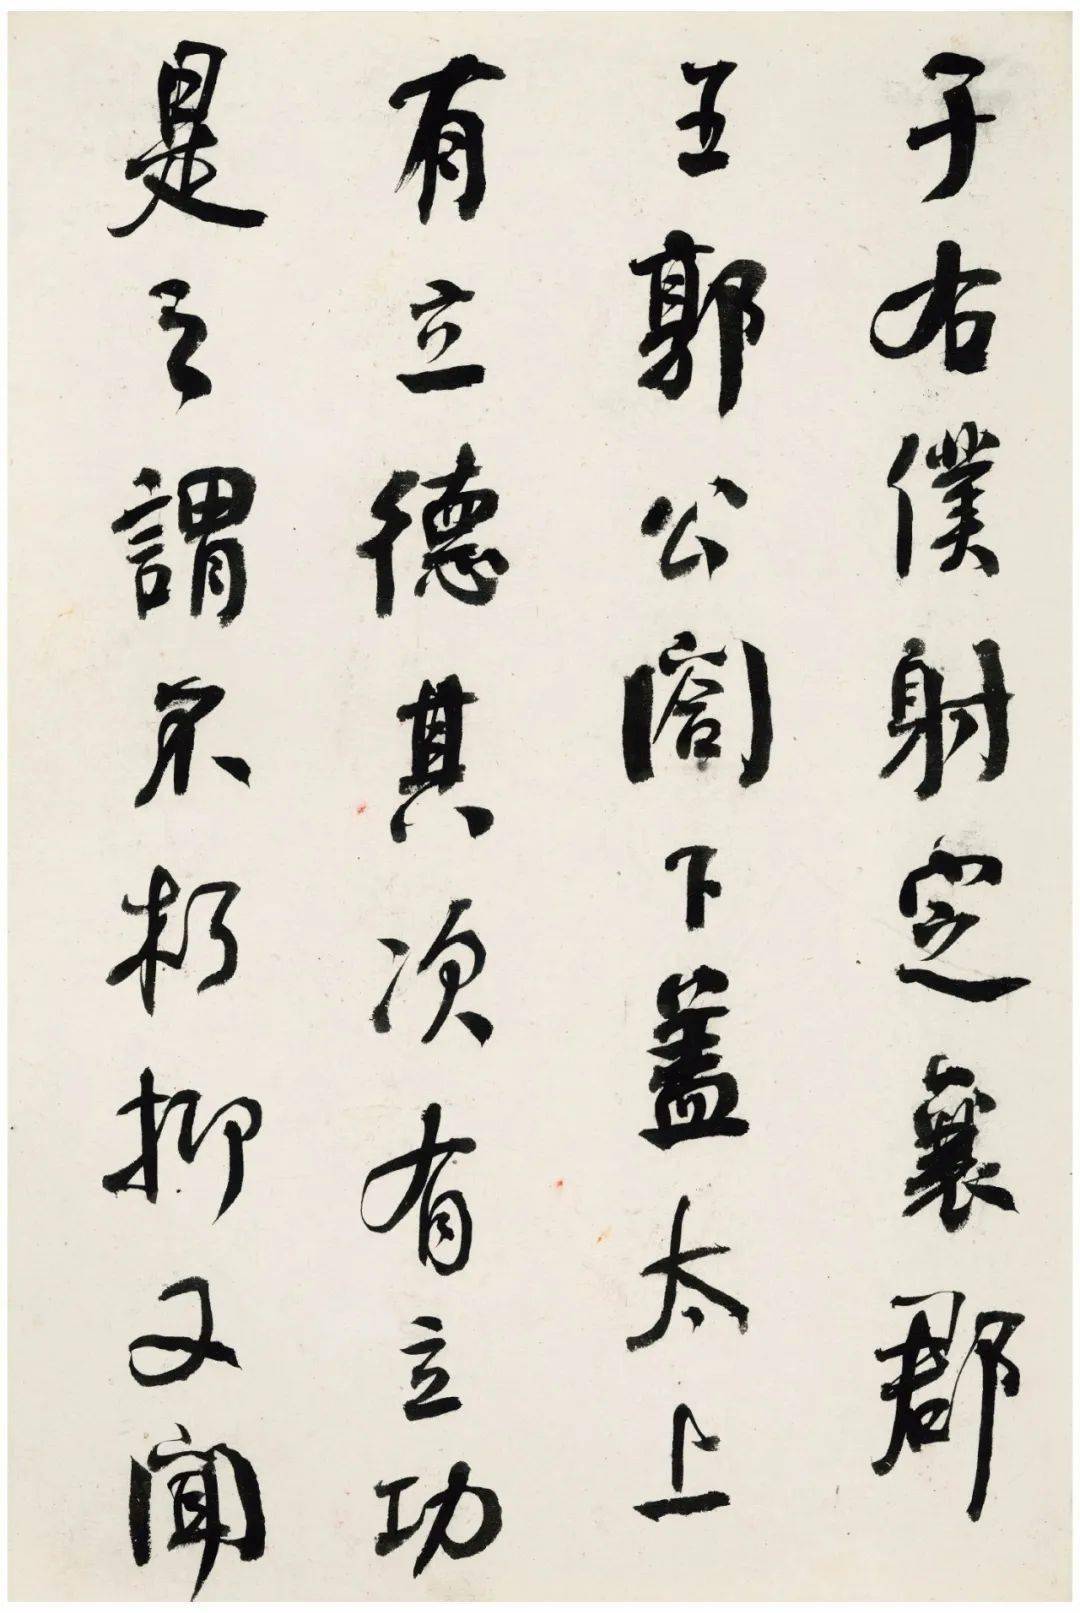 于右僕射定襄郡
王郭公閤下蓋太上
有立德其次有立功
是之謂不朽抑又聞